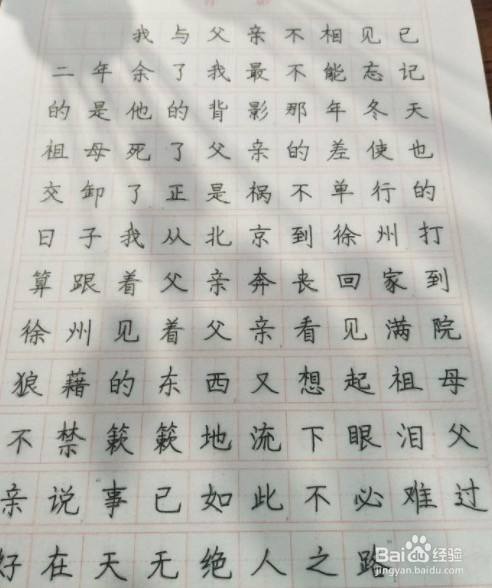 我与父亲不相见已
二年余了我最不能忘记
的是他的背影那年冬天
祖母死了父亲的差使也
交卸了正是祸不单行的
日子我从北京到徐州打
算跟着父亲奔丧回家到
徐州见着父亲看见满院
狼藉的东西又想起祖母
不禁簌簌地流下眼泪父
亲说事已如此不必难过
好在天无绝人之路
Baidu经验
jingyan.baidu.com